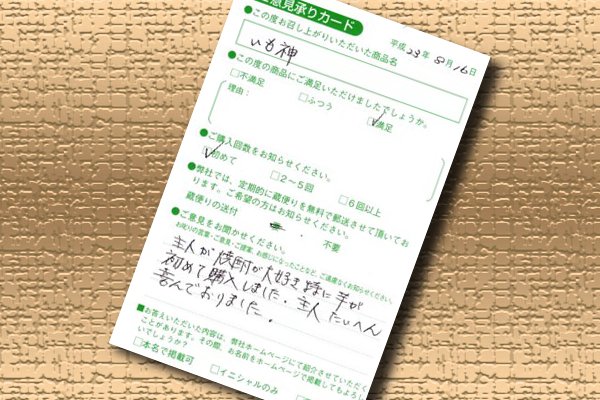 意見承りカード
平成23年8月16日
●この度お召し上がりいただいた商品名
いも神
●この度の商品にご満足いただけましたでしょうか。
□不満足 □ふつう □満足
理由：
●ご購入回数をお知らせください。
□初めて □2～5回 □6回以上
●弊社では、定期的に蔵便りを無料で郵送させて頂いてお
ります。ご希望の方はお知らせください。
蔵便りの送付 不要
●ご意見をお聞かせください。
お叱りの言葉・ご意見・ご提案、お感じになったことなど、ご遠慮なくお知らせください。
主人が焼酎が大好き特に芋が
初めて購入しました。主人たいへん
喜んでおりました。
■お答えいただいた内容は、弊社ホームページにて紹介させていただく
ことがあります。その際、お名前をホームページで掲載してもよろし
いでしょうか？
□本名で掲載可 □イニシャルのみ